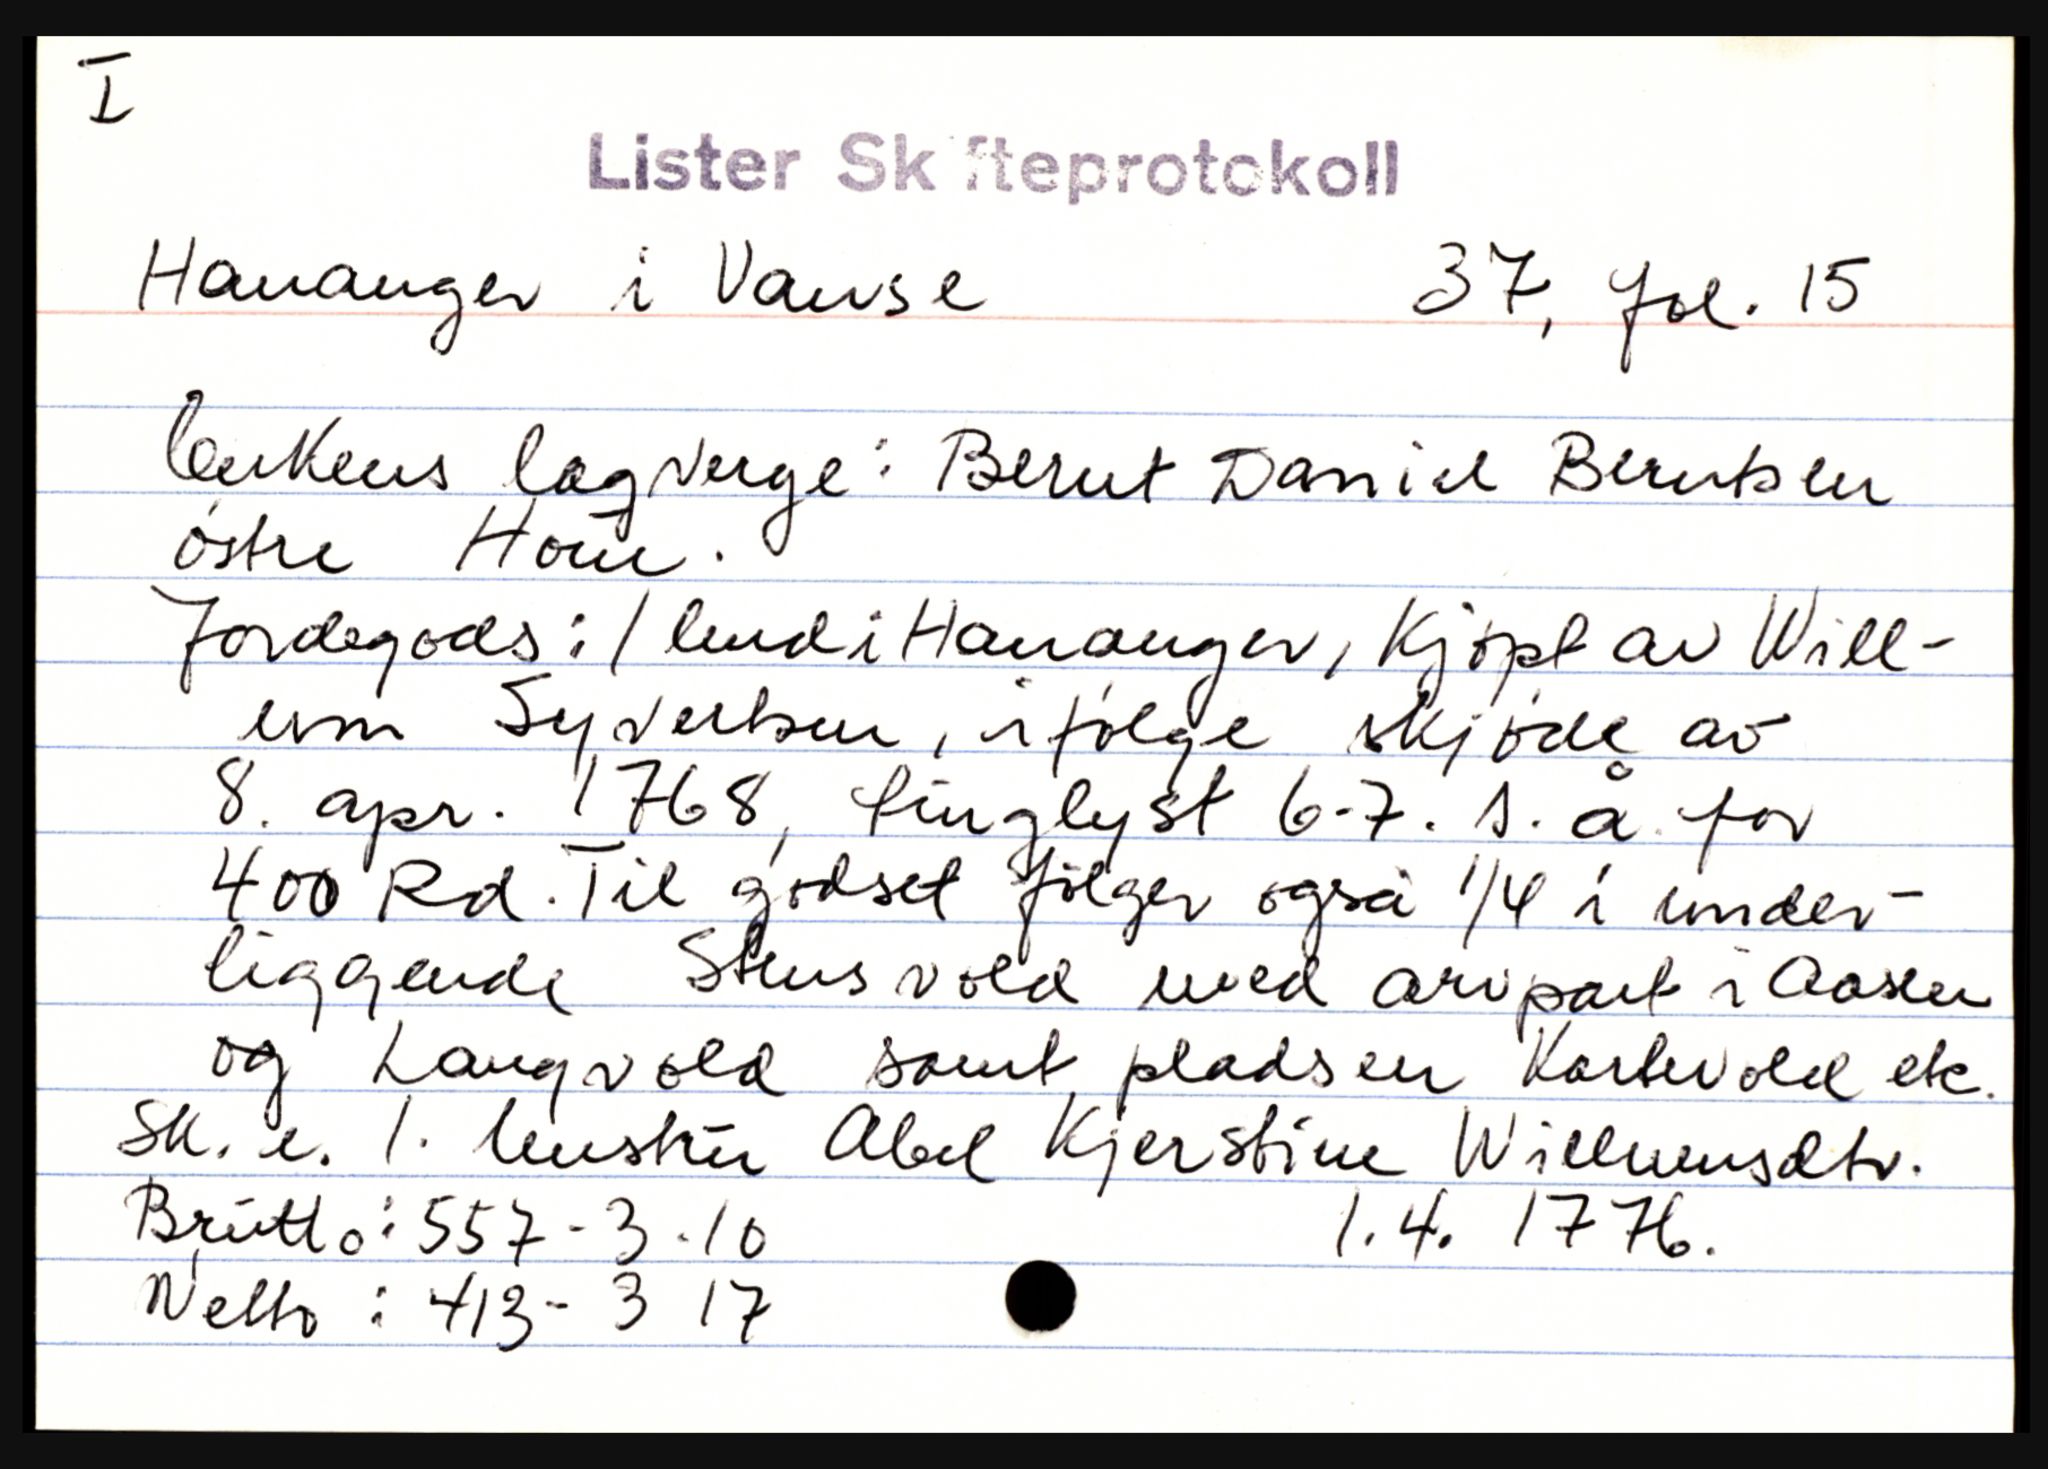 I
Lister Skifteprotokoll
Hananger i Vanse 37, fol. 15
Enkens lagverge: Bernt Daniel Berntsen
østre Hoüe.
Jordegods: 1 hud i Hananger, kjøpt av Will-
um Syvertsen, ifølge skjøde av
8. apr. 1768, tinglyst 6-7. s. å. for
400 Rd. Til godset følger også 1/4 i under-
liggende Stensvold med arvpart i Aasen
og Langvold samt pladsen Kortevold etc.
Sk. e. 1. hustrü Abel Kjerstine Willumsdtr.
Brütto: 557-3-10 1.4. 1776.
Netto: 413-3 17